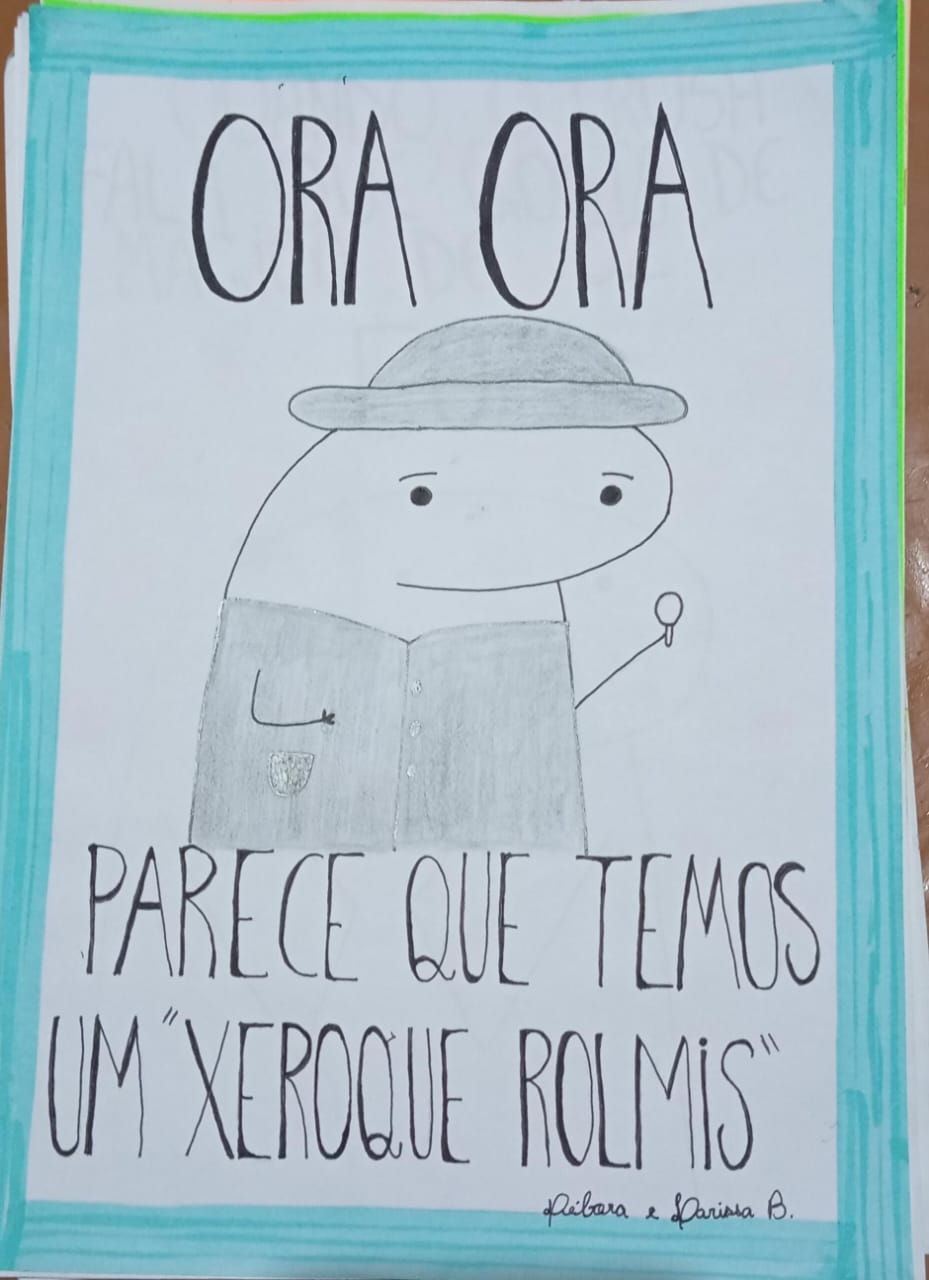 ORA ORA
PARECE QUE TEMOS
UM "XEROQUE ROLMIS"
Débora e Larissa B.